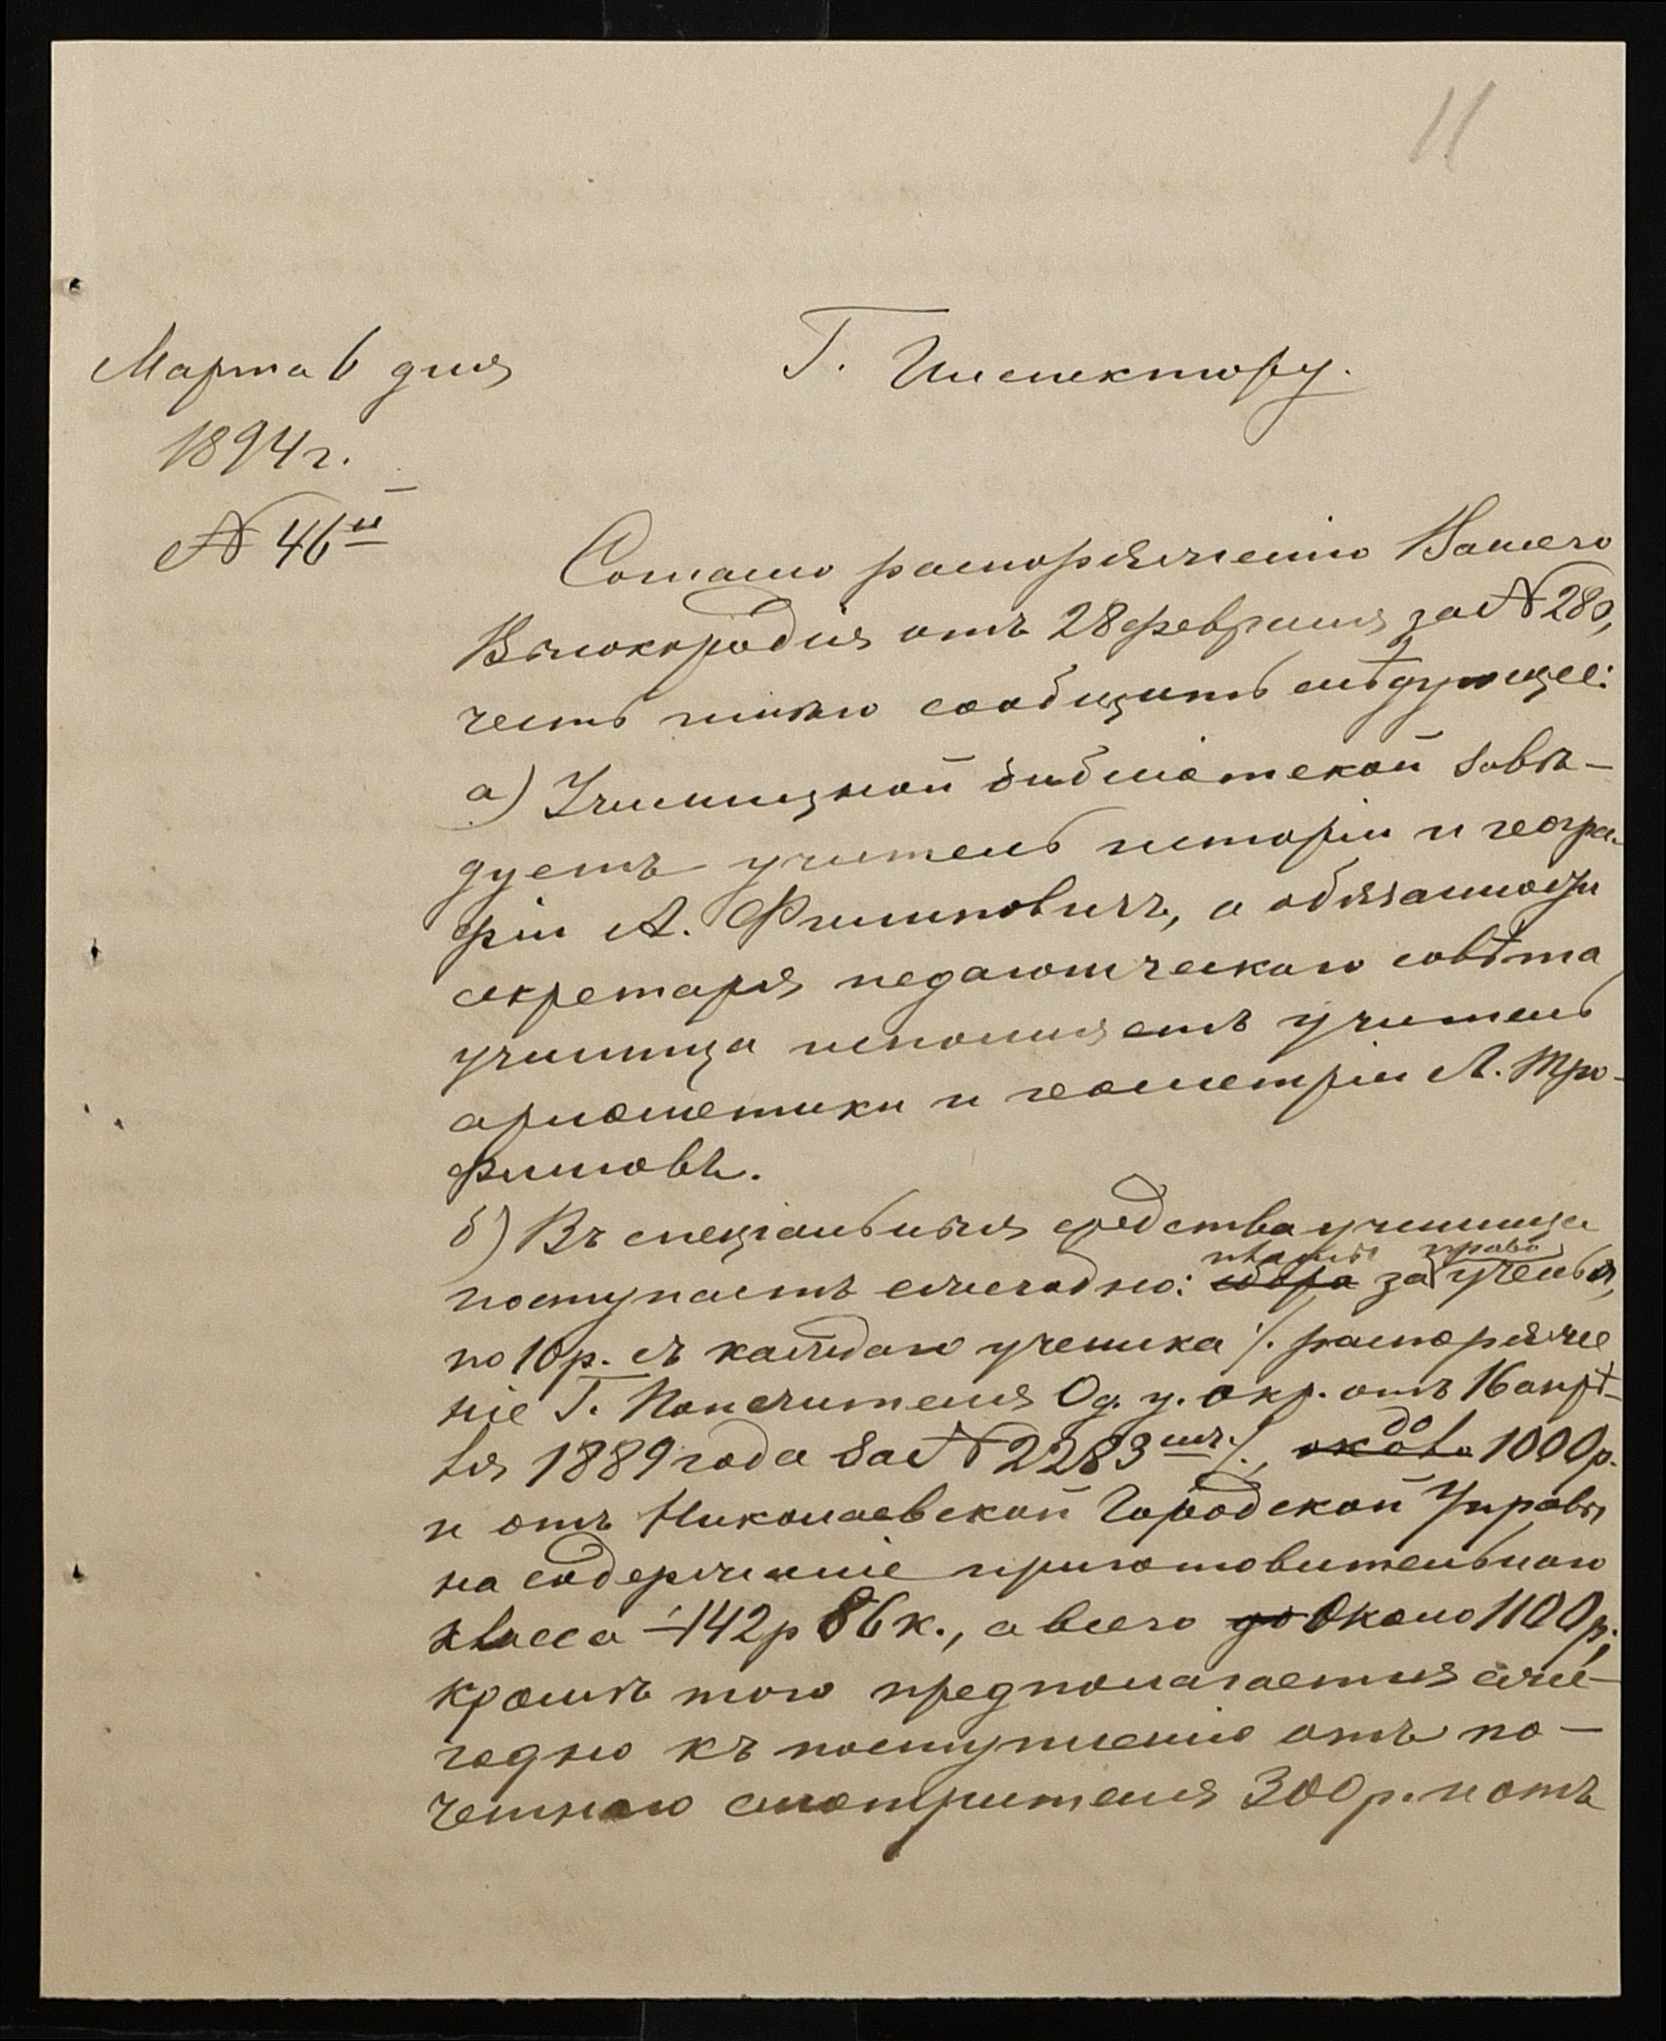 11
Марта 6 дня
1894 г.
№ 46й
Г. Инспектору.
Согласно распоряженію Вашего
Высокородія отъ 28 февраля за № 280,
честь имѣю сообщить слѣдующее:
а) Училищной библіотекой завѣ-
дуетъ учитель исторіи и геогра-
фіи А. Филиповичъ, а обязанности
секретаря педагогическаго совѣта
училища исполняетъ учитель
ариѳметики и геометріи А. Тро-
фимовъ.
б) Въ спеціальныя средства училища
платы право
поступаетъ ежегодно: сбора за ученья,
по 10 р. съ каждаго ученика /. распоряже
ніе Г. Попечителя Од. у. окр. отъ 16 апрѣ-
ля 1889 года за № 2283 /., около до 1000 р.
и отъ Николаевской Городской Управы
на содержаніе приготовительнаго
класса – 142 р 86 к., а всего до около 1100 р.;
кромѣ того предполагается еже-
годно къ поступленію отъ по-
четнаго смотрителя 300 р. и отъ